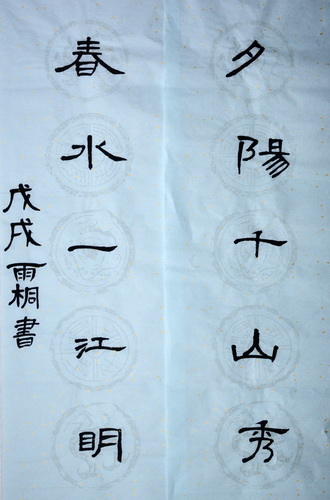 夕陽千山秀
春水一江明
戊戌雨桐書